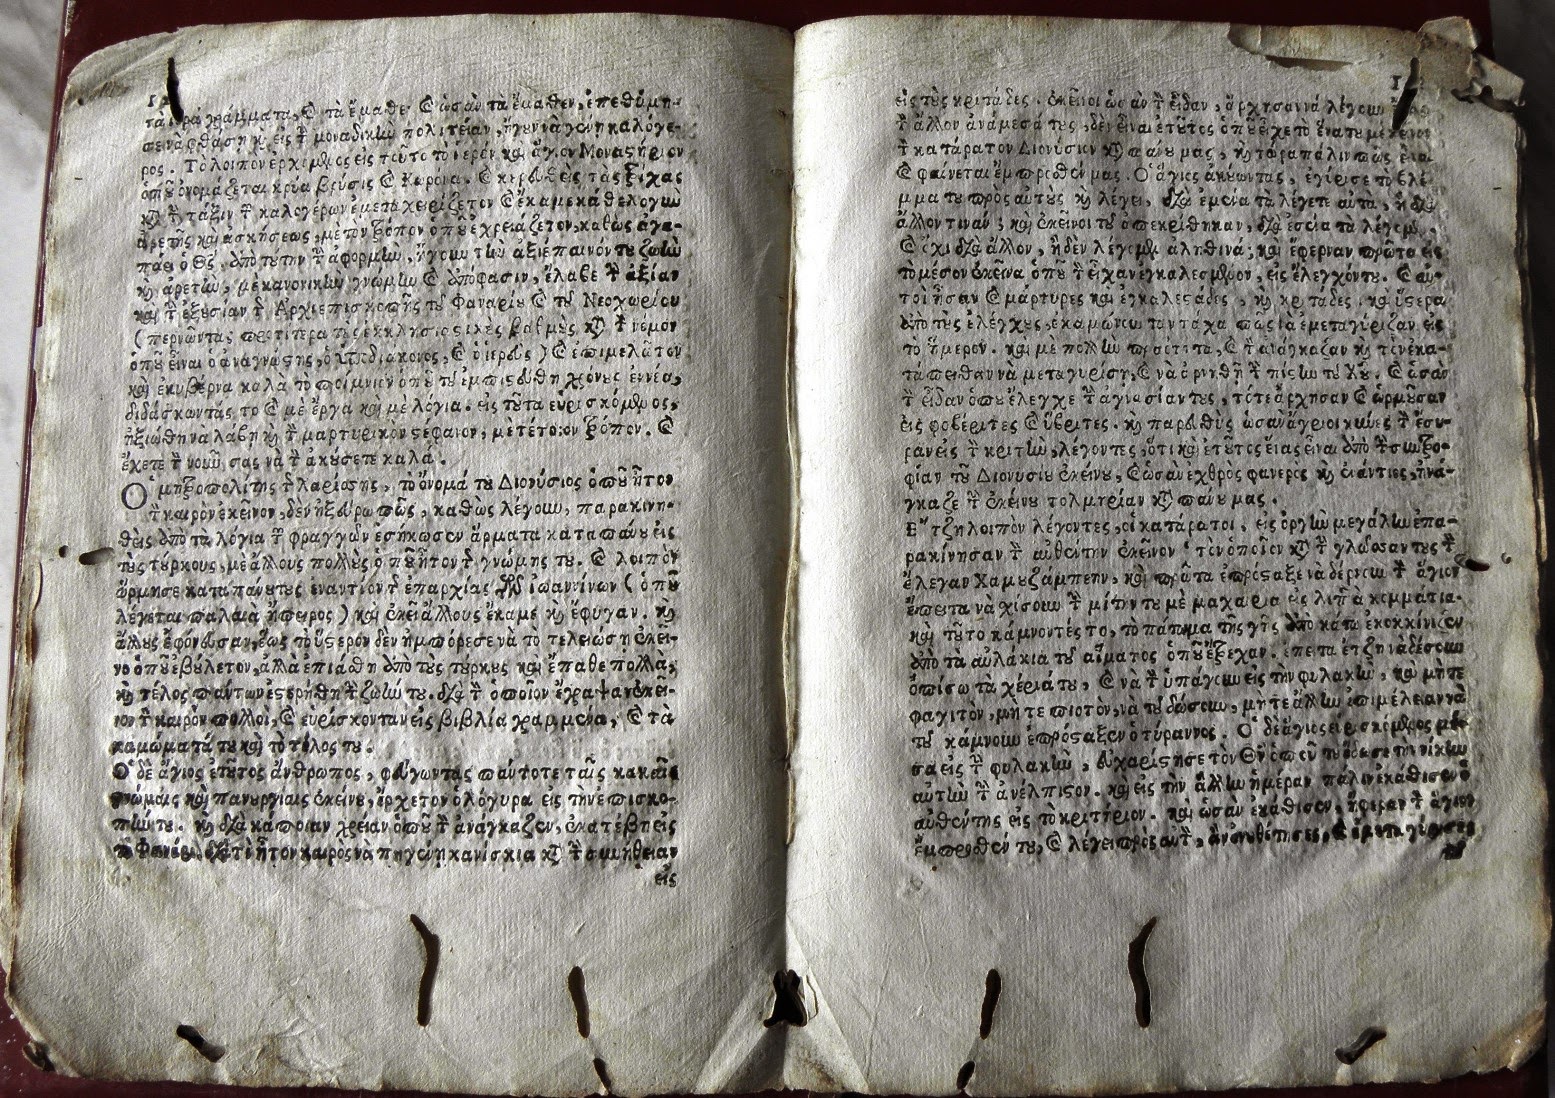 τὰ ἱερὰ γράμματα, καὶ τὰ ἔμαθε. καὶ ὡσὰν τὰ ἔμαθεν, ἐπεθύμη-
σε νὰ φθάσῃ καὶ εἰς τὴν μοναδικὴν πολιτείαν, ἤγουν νὰ γένῃ καλόγε-
ρος. Τὸ λοιπὸν ἐρχόμενος εἰς τοῦτο τὸ ἱερὸν καὶ ἅγιον Μοναστήριον
ὁποῦ ὀνομάζεται κρύα βρύσις καὶ Κορώνα. καὶ κερθεὶς τὰς τρίχας
κατὰ τὴν τάξιν τῶν καλογέρων ἐμεταχειρίζετον καὶ ἔκαμε κάθε λογῆν
ἀρετῆς καὶ ἀσκήσεως, μὲ τὸν τρόπον ὁποῦ ἐχρειάζετον, καθὼς ἀγα-
πάει ὁ Θεός, ἀπὸ τούτην τὴν ἀφορμὴν, ἤγουν τὴν ἀξιέπαινόν του ζωὴν
καὶ ἀρετὴν, μὲ κανονικὴν γνώμην καὶ ἀπόφασιν, ἔλαβε τὴν ἀξίαν
καὶ τὴν ἐξουσίαν τῆς Ἀρχιεπισκοπῆς τοῦ Φαναρίου καὶ τοῦ Νεοχωρίου
(περνῶντας προτίτερα τῆς ἐκκλησιαστικὲς βαθμὲς, κατὰ τὸν νόμον
ὁποῦ εἶναι ὁ ἀναγνώστης, ὁ ὑποδιάκονος, καὶ ὁ ἱερεὺς) καὶ ἐπιμελᾶτον
καὶ ἐκυβέρνα καλὰ τὸ ποίμνιον ὁποῦ τοῦ ἐμπιστεύθη χρόνους ἐννέα,
διδάσκωντάς το καὶ μὲ ἔργα καὶ μὲ λόγια. εἰς τοῦτα εὑρισκόμενος,
ἠξιώθη νὰ λάβῃ καὶ τὸν μαρτυρικὸν στέφανον, μὲ τέτοιον τρόπον. καὶ
ἔχετε τὸν νοῦν σας νὰ τὸν ἀκούσετε καλά.
Ὁ μητροπολίτης τῆς λαρίσσης, τὸ ὄνομά του Διονύσιος ὁποῦ ἦτον
τὸν καιρὸν ἐκεῖνον, δὲν ἠξεύρω πῶς, καθὼς λέγουν, παρακινη-
θεὶς ἀπὸ τὰ λόγια τῶν φραγγῶν ἐσήκωσεν ἅρματα καταπάνου εἰς
τοὺς τούρκους, μὲ ἄλλους πολλοὺς ὁποῦ ἦτον τῆς γνώμης του. καὶ λοιπὸν
ὥρμησε καταπάνου τους ἐναντίον τῆς ἐπαρχίας τῶν ἰωαννίνων (ὁποῦ
λέγεται παλαιὰ ἤπειρος) καὶ ἐκεῖ ἄλλους ἔκαμε καὶ ἔφυγαν. καὶ
ἄλλους ἐφόνευσαν, ἕως τοὕστερον δὲν ἠμπόρεσε νὰ τὸ τελειώσῃ ἐκεῖ-
νο ὁποῦ ἐβούλετον, ἀλλὰ ἐπιάσθη ἀπὸ τοὺς τούρκους καὶ ἔπαθε πολλὰ,
καὶ τέλος πάντων ἐστερήθη τὴν ζωήν του. διὰ τὸν ὁποῖον ἔγραψαν ἐκεῖ-
νον τὸν καιρὸν πολλοὶ, καὶ εὑρίσκονταν εἰς βιβλία γραμμένα, καὶ τὰ
καμώματά του καὶ τὸ τέλος του.
Ὁ δὲ ἅγιος ἐτοῦτος ἄνθρωπος, φεύγωντας πάντοτε ταῖς κακαῖς
γνώμαις καὶ πανουργίαις ἐκείνου, ἔρχετον ὁλόγυρα εἰς τὴν ἐπισκο-
πήν του. καὶ διὰ κάποιαν χρείαν ὁποῦ τὸν ἀνάγκαζεν, ἐκατέβη εἰς
τὸ Φανάρι, διατὶ ἦτον καιρὸς νὰ πηγαίνῃ κανίσκια κατὰ τὴν συνήθειαν
εἰς
εἰς τοὺς κριτάδες. ἐκεῖνοι ὡσὰν τὸν εἶδαν, ἄρχησαν νὰ λέγουν
τὸν ἄλλον ἀνάμεσά τους, δὲν εἶναι ἐτοῦτος ὁποῦ εἶχε τὸ
τὸν κατάρατον Διονύσιον κατὰ πάνου μας, καὶ τώρα πάλιν πῶς
καὶ φαίνεται ἔμπροσθέν μας. Ὁ ἅγιος ἀκούωντας, ἐγύρισε τὸ βλέ-
μμα του πρὸς αὐτοὺς καὶ λέγει, διὰ ἐμένα τὰ λέγετε αὐτὰ, ἢ διὰ
ἄλλον τινάν; καὶ ἐκεῖνοι τοῦ ἀπεκρίθηκαν, διὰ ἐσένα τὰ λέγομεν,
καὶ ὄχι διὰ ἄλλον, ἢ δὲν λέγομεν ἀληθινά; καὶ ἔφερναν πρῶτα εἰς
τὸ μέσον ἐκεῖνα ὁποῦ τὸν εἶχαν ἐγκαλεσμένον, εἰς ἔλεγχόν του. καὶ αὐ-
τοὶ ἦσαν καὶ μάρτυρες καὶ ἐγκαλεστάδες, καὶ κριτάδες, καὶ ὕστερα
ἀπὸ τοὺς ἐλέγχους, ἐκαμώνουνταν τάχα πῶς νὰ ἐμεταγύριζαν εἰς
τὸ ἥμερον. καὶ μὲ πολλὴν πραότητα, καὶ τὸν ἀνάγκαζαν καὶ τὸν ἐκα-
τάπειθαν νὰ μεταγυρίσῃ, καὶ νὰ ἀρνηθῇ τὴν πίστιν τοῦ Χριστοῦ. καὶ ὡσὰν
τὸν εἶδαν ὁποῦ ἔλεγχε τὴν ἀγνωσίαν τους, τότε ἄρχησαν καὶ ὥρμησαν
εἰς φοβέριτες καὶ ὕβριτες. καὶ παρευθὺς ὡσὰν ἄγριοι κύνες τὸν ἔσυ-
ραν εἰς τὸν κριτὴν, λέγοντες, ὅτι καὶ ἐτοῦτος ἕνας εἶναι ἀπὸ τὴν συντρο-
φίαν τοῦ Διονυσίου ἐκείνου, καὶ ὡσὰν ἐχθρὸς φανερὸς καὶ ἐνάντιος, ἠνά-
γκαζε τὸν ἐκείνου τολμηρίαν κατὰ πάνου μας.
Ἔτζη λοιπὸν λέγοντες, οἱ κατάρατοι, εἰς ὀργὴν μεγάλην ἐπα-
ρακίνησαν τὸν αὐθέντην ἐκεῖνον. τὸν ὁποῖον κατὰ τὴν γλῶσσαν τους τὸν
ἔλεγαν Χαμουζάμπεην, καὶ πρῶτα ἐπρόσταξε νὰ δέρνουν τὸν ἅγιον
ἔπειτα νὰ σχίσουν τὴν μύτην του μὲ μαχαίρια εἰς λιπὰ κομμάτια.
καὶ τοῦτο κάμνοντές το, τὸ πάτημα τῆς γῆς ἀπὸ κάτω ἐκοκκίνιζεν
ἀπὸ τὰ αὐλάκια τοῦ αἵματος ὁποῦ ἔτρεχαν. ἔπειτα ἔτζη νὰ δέσουν
ὀπίσω τὰ χέριά του, καὶ νὰ τὸν ὑπάγουν εἰς τὴν φυλακὴν, καὶ μήτε
φαγιτὸν, μήτε πιοτὸν, νὰ τοῦ δώσουν, μήτε ἄλλην ἐπιμέλειαν νὰ
τοῦ κάμνουν ἐπρόσταξεν ὁ τύραννος. Ὁ δὲ ἅγιος εὑρισκόμενος μέ-
σα εἰς τὴν φυλακὴν, εὐχαρίστησε τὸν Θεὸν ὁποῦ τοῦ ἔδωσε τὴν νίκην
αὐτὴν τὴν ἀνέλπιστον. καὶ εἰς τὴν ἄλλην ἡμέραν πάλιν ἐκάθισεν ὁ
αὐθέντης εἰς τὸ κριτήριον. καὶ ὡσὰν ἐκάθισεν, ἤφεραν τὸν ἅγιον
ἔμπροσθέν του, καὶ λέγει πρὸς αὐτὸν, ἂν ἐνουθέτησες, καὶ ἐμεταγύρισες